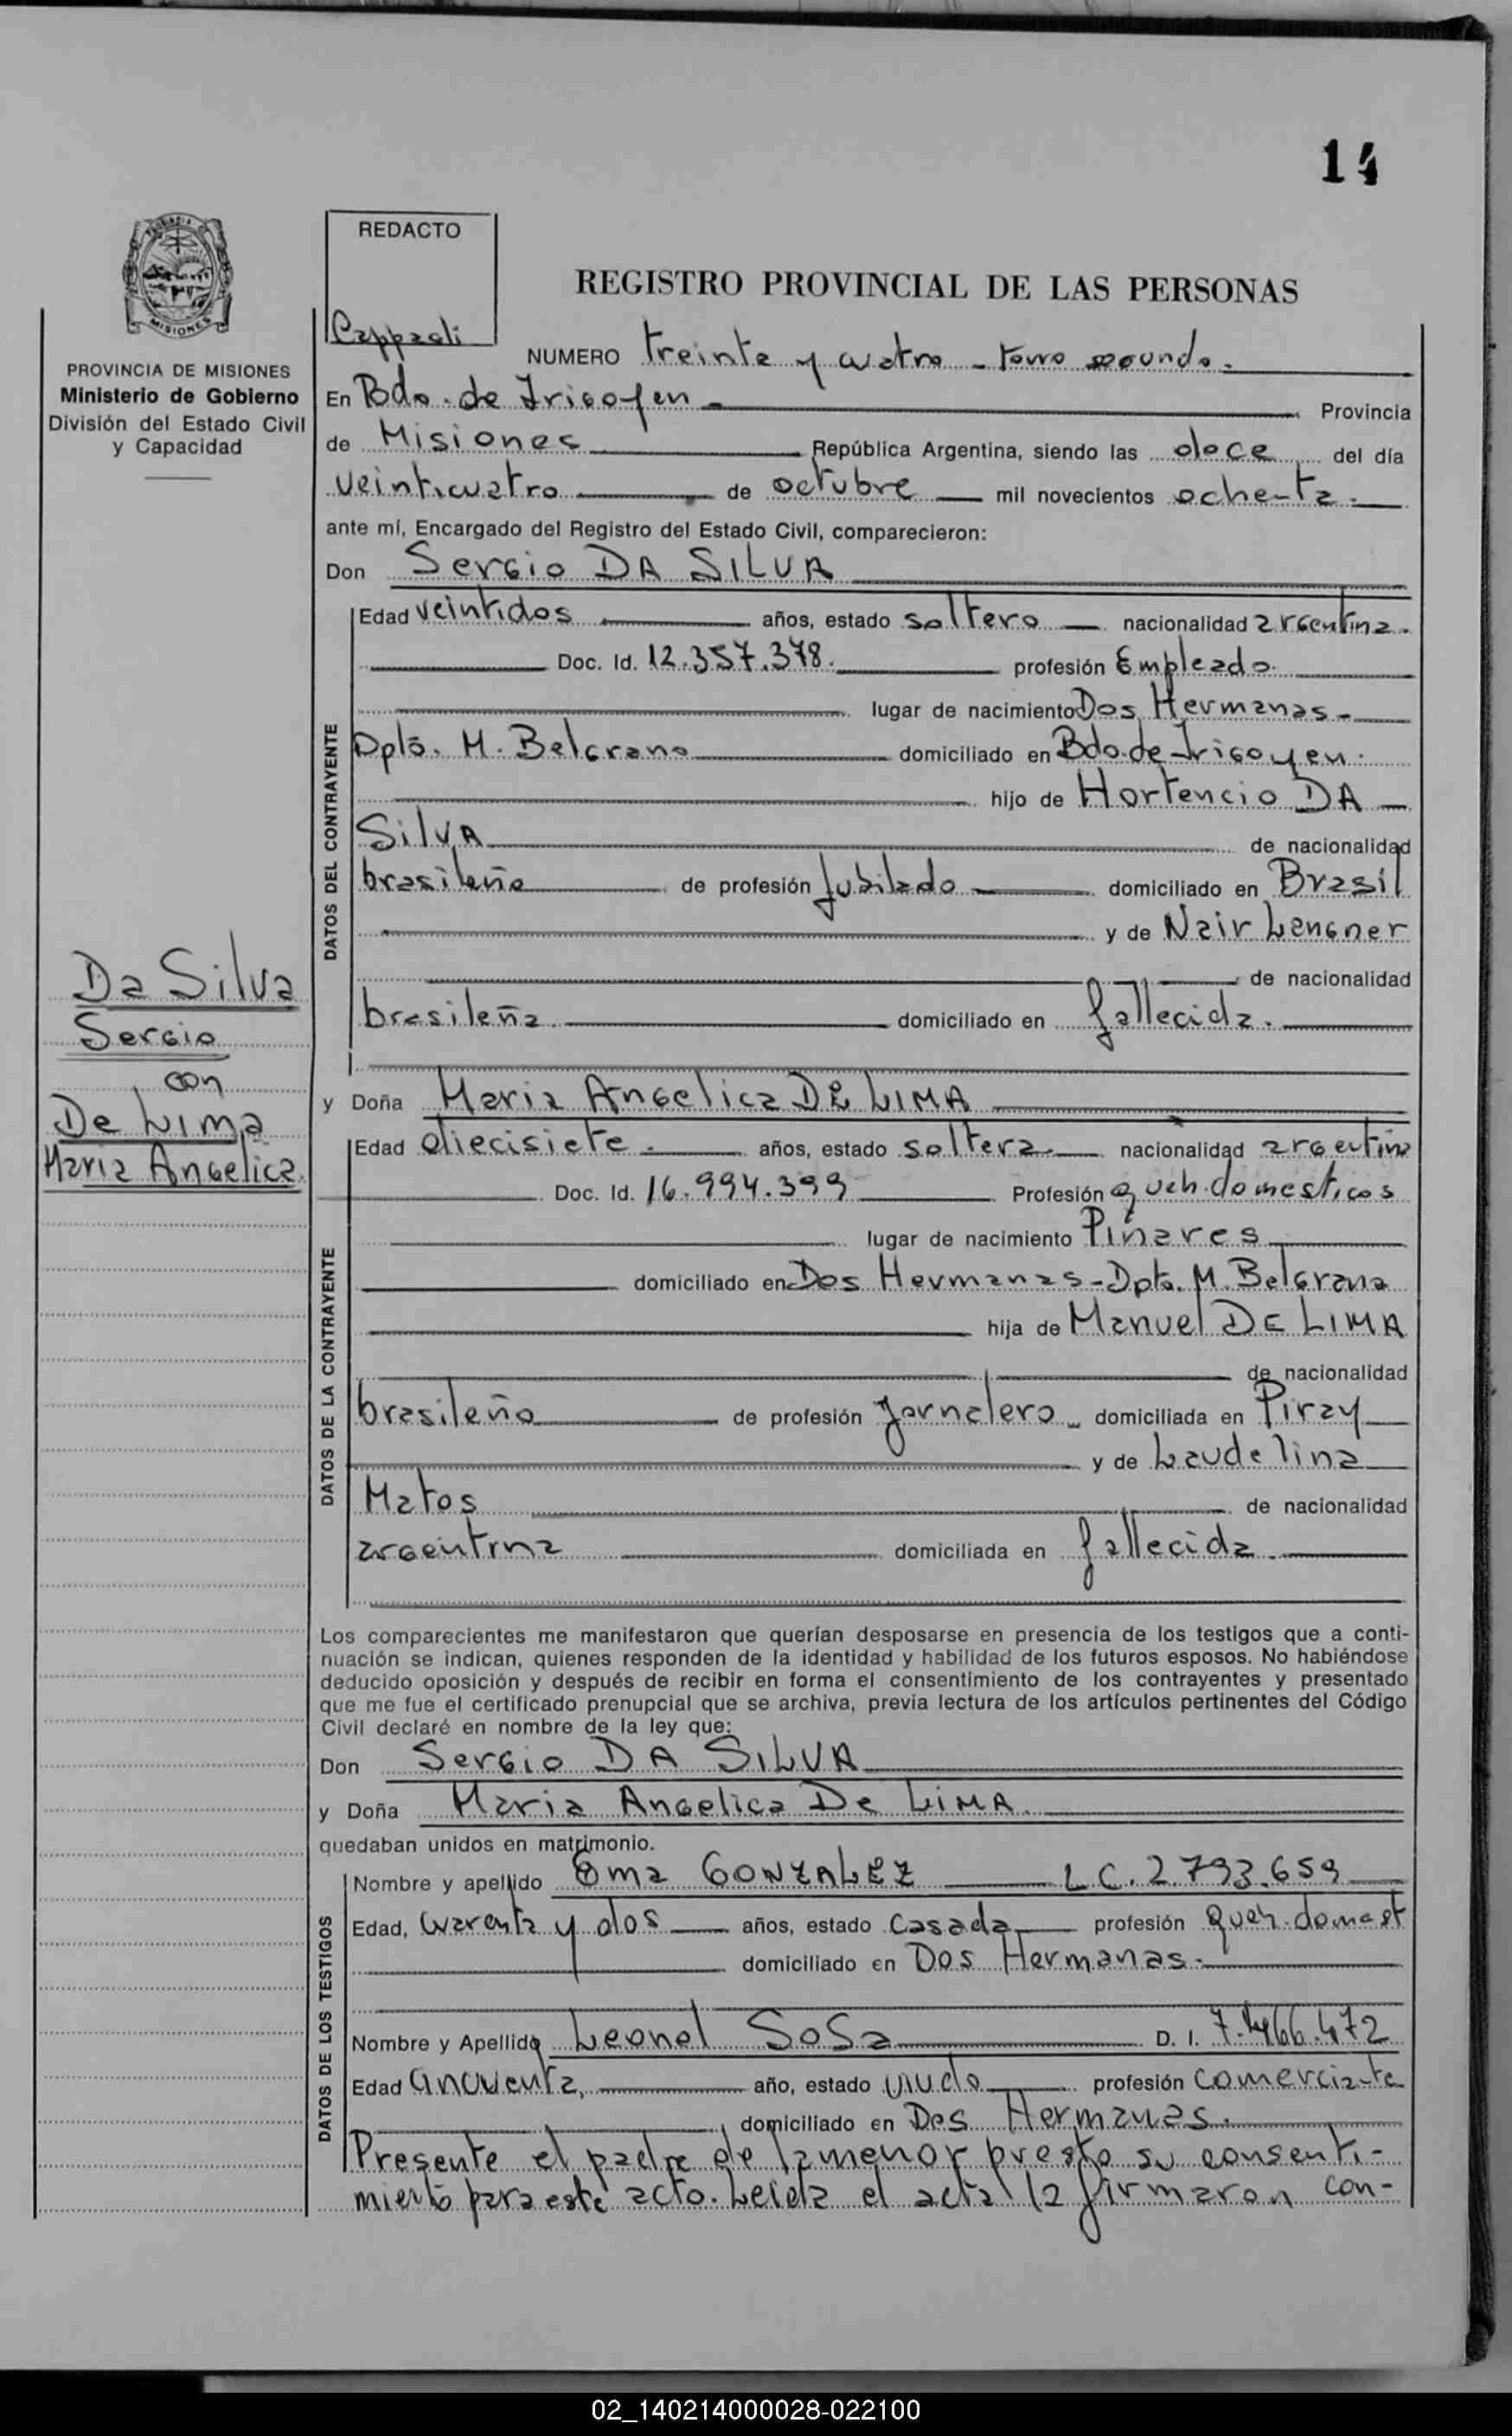 14
REDACTO
REGISTRO PROVINCIAL DE LAS PERSONAS
MISIONES
PROVINCIA DE MISIONES
Ministerio de Gobierno
División del Estado Civil
y Capacidad
NUMERO treinta y cuatro - tomo segundo.
En Bdo. de Irigoyen - Provincia
de Misiones República Argentina, siendo las doce del día
veinticuatro de octubre mil novecientos ochenta.
ante mí, Encargado del Registro del Estado Civil, comparecieron:
Don Sergio DA SILVA
Edad veintidos años, estado soltero nacionalidad argentina.
Doc. Id. 12.357.378. profesión Empleado.
lugar de nacimiento Dos Hermanas -
Dpto. M. Belgrano domiciliado en Bdo. de Irigoyen.
hijo de Hortencio DA
SilVA de nacionalidad
brasileña de profesión Jubilado domiciliado en Brasil
y de Nair Lengner
de nacionalidad
brasileña domiciliado en fallecida.
DATOS DEL CONTRAYENTE
Da Silva
Sergio
con
De Lima
Maria Angelica.
y Doña Maria Angelica DE LIMA
Edad diecisiete. años, estado soltera. nacionalidad argentina
Doc. Id. 16.994.399 Profesión queh. domesticos
lugar de nacimiento Pinares
domiciliado en Dos Hermanas - Dpto. M. Belgrano
hija de Manuel DE LIMA
de nacionalidad
brasileño de profesión Jornalero domiciliada en Piray
y de Laudelina
Matos de nacionalidad
argentina domiciliada en fallecida.
DATOS DE LA CONTRAYENTE
Los comparecientes me manifestaron que querían desposarse en presencia de los testigos que a conti-
nuación se indican, quienes responden de la identidad y habilidad de los futuros esposos. No habiéndose
deducido oposición y después de recibir en forma el consentimiento de los contrayentes y presentado
que me fue el certificado prenupcial que se archiva, previa lectura de los artículos pertinentes del Código
Civil declaré en nombre de la ley que:
Don Sergio DA SILVA
y Doña Maria Angelica De LiMA.
quedaban unidos en matrimonio.
Nombre y apellido Ema GONZALEZ L C. 2.793.659
Edad, cuarenta y dos años, estado casada profesión queh. domest
domiciliado en Dos Hermanas.
Nombre y Apellido Leonel SoSa D. I. 7.466.472
Edad cincuenta, año, estado viudo profesión comerciante
domiciliado en Dos Hermanas.
DATOS DE LOS TESTIGOS
Presente el padre de la menor presto su consenti-
miento para este acto. Leida el acta la firmaron con-
02_140214000028-022100